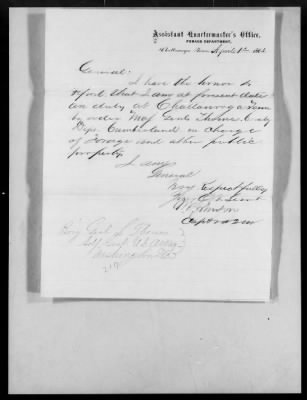 Assistant Quartermaster's Office,
FORAGE DEPARTMENT,
Chattanooga Tenn April 1st 186
General:
I have the honor to
report that I am at present date
on duty at Chattanooga Tenn
by order Maj Genl Thomas Comdg
Dept Cumberland in charge
of Forage and other public
property.
I am
General
Very Respectfully
Your Obt Servt
Capt & AQM
Brig Genl L Thomas
Adjt Genl U.S. Army
Washington